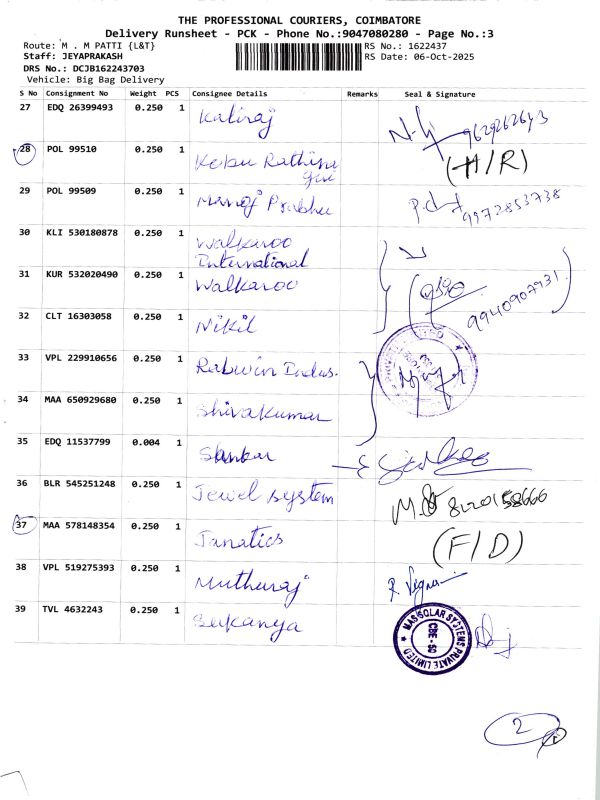 THE PROFESSIONAL COURIERS, COIMBATORE
Delivery Runsheet - PCK - Phone No.:9047080280 - Page No.:3
Route: M . M PATTI {L&T} RS No.: 1622437
Staff: JEYAPRAKASH RS Date: 06-Oct-2025
DRS No.: DCJB162243703
Vehicle: Big Bag Delivery
S No Consignment No Weight PCS Consignee Details Remarks Seal & Signature
27 EDQ 26399493 0.250 1 Kaliraj 9629262643
28 POL 99510 0.250 1 Rathina (H/R)
29 POL 99509 0.250 1 Manoj Prabhu 9972853738
30 KLI 530180878 0.250 1 Walkaroo
International
31 KUR 532020490 0.250 1 Walkaroo 9940907931
32 CLT 16303058 0.250 1 Nikil
33 VPL 229910656 0.250 1 Rabwin Indus.
34 MAA 650929680 0.250 1 Shivakumar
35 EDQ 11537799 0.004 1 Sankar
36 BLR 545251248 0.250 1 Jewel system
37 MAA 578148354 0.250 1 Janatics (F/D)
38 VPL 519275393 0.250 1 Muthuraj
39 TVL 4632243 0.250 1 Sukanya
MAS SOLAR SYSTEMS PRIVATE LIMITED
CBE - 50
2